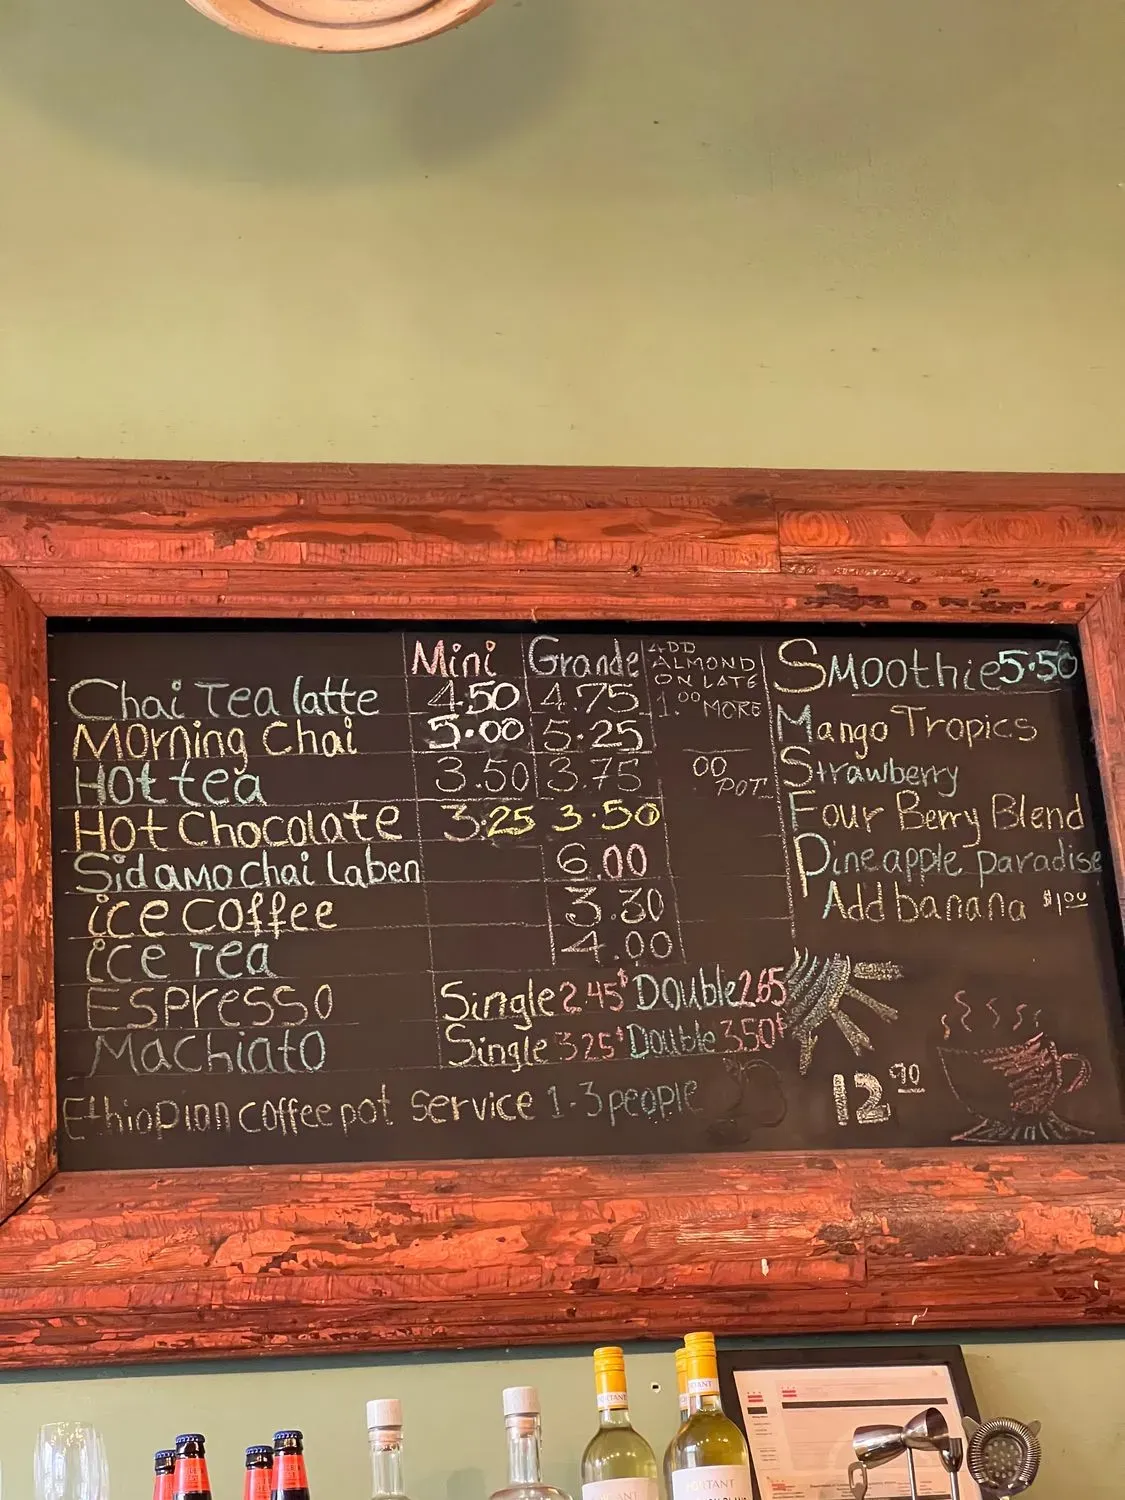 Mini Grande
Chai Tea latte 4.50 4.75
Morning Chai 5.00 5.25
Hot tea 3.50 3.75
Hot Chocolate 3.25 3.50
Sidamo chai Laben 6.00
ice coffee 3.30
ice Tea 4.00
Espresso Single 2.45$ Double 2.65
Machiato Single 3.25$ Double 3.50$
Ethiopian coffee pot service 1-3 people 12.90
ADD
ALMOND
ON LATE
1.00 MORE
00
POT
Smoothie 5.50
Mango Tropics
Strawberry
Four Berry Blend
Pineapple paradise
Add banana $1.00